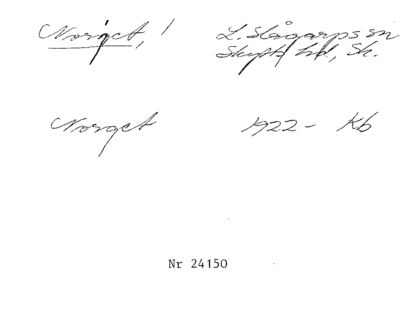 Norget, ! L. Slågarps sn
Skytts hd, Sk.
Norget 1922 - Kb
Nr 24150